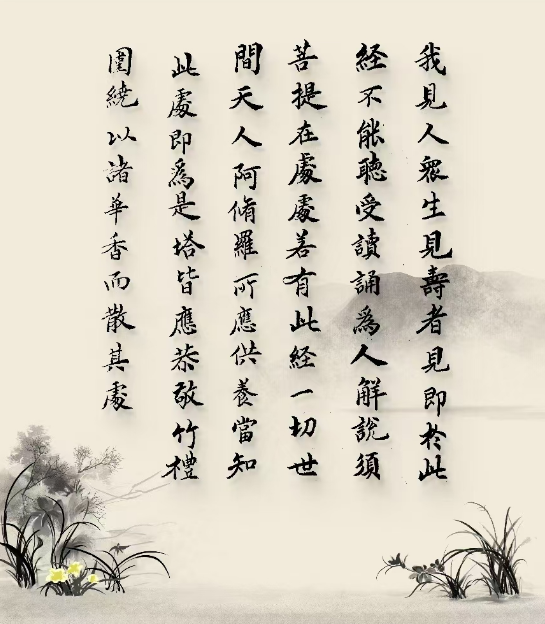 我見人眾生見壽者見即於此
経不能聽受讀誦爲人解說須
菩提在處處若有此経一切世
間天人阿脩羅所應供養當知
此處即爲是塔皆應恭敬竹禮
圍繞以諸華香而散其處